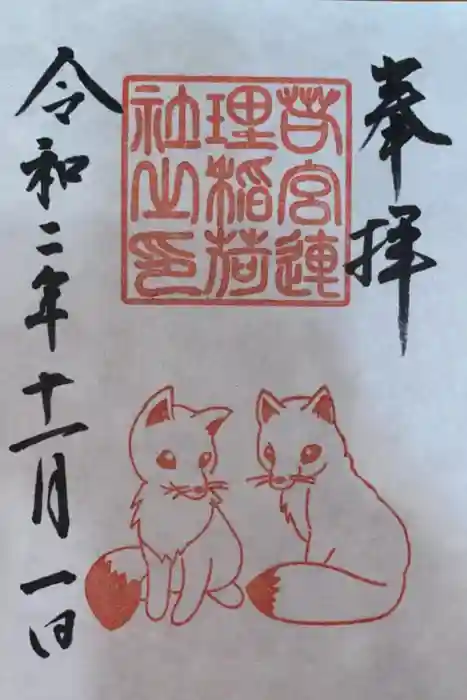 奉拝
若宮連
理稲荷
社之印
令和二年十一月一日